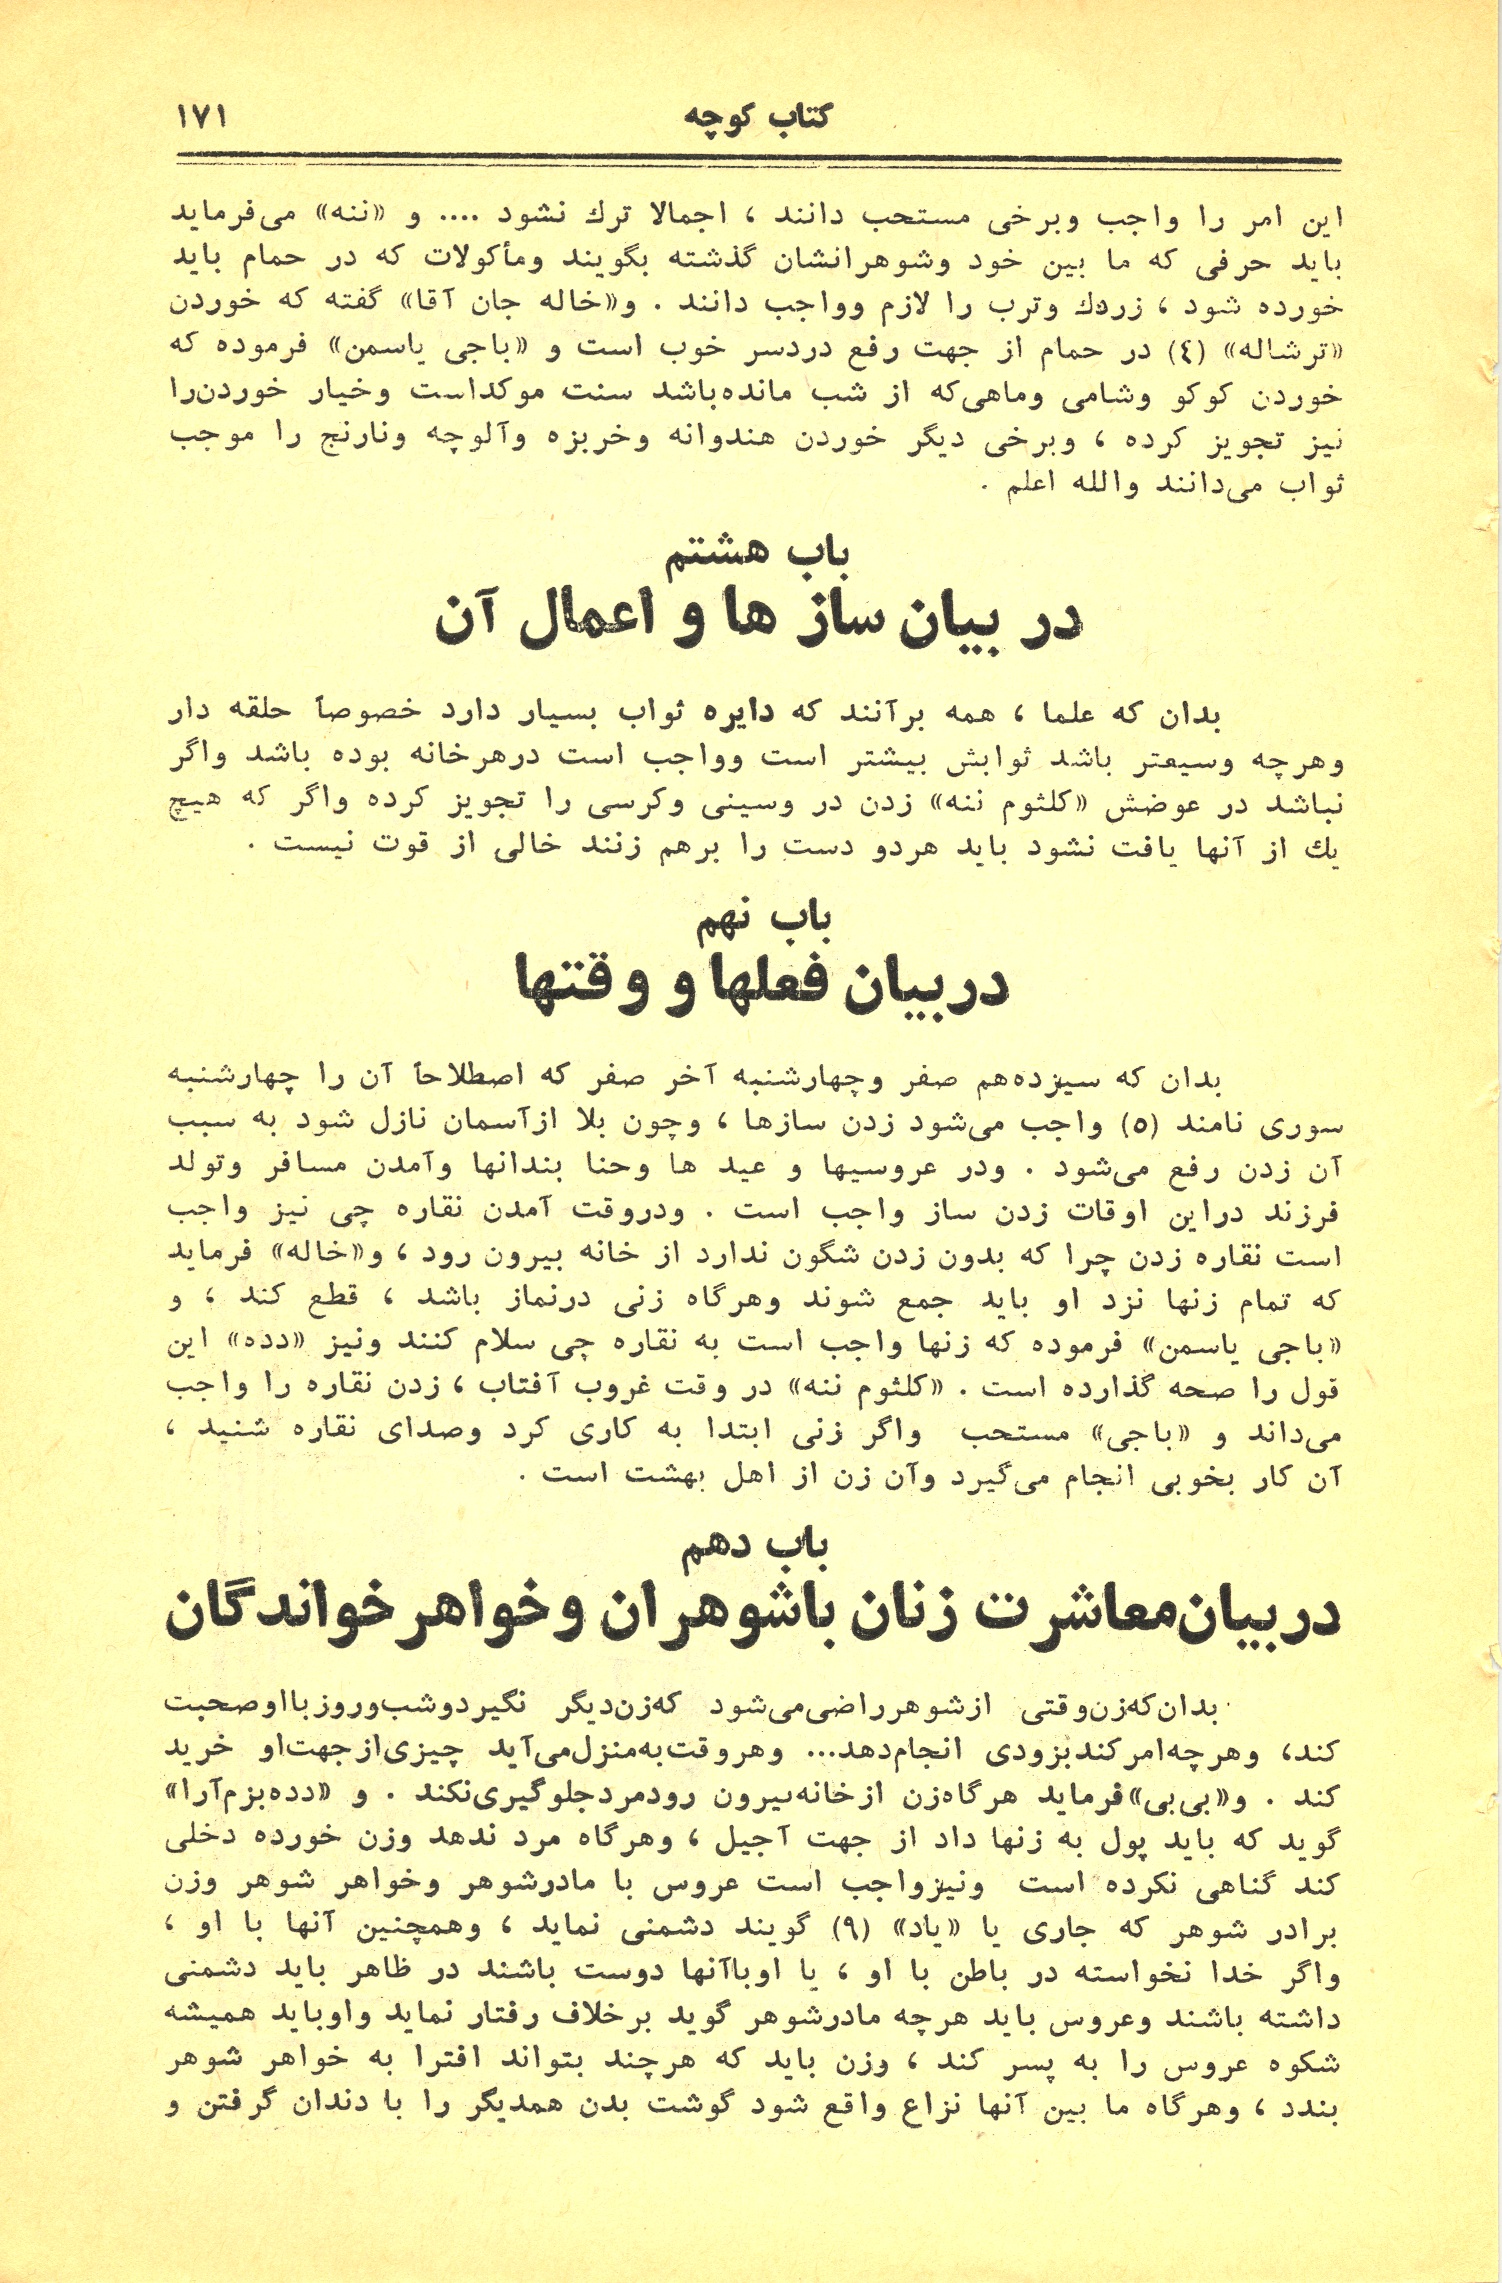 کتاب کوچه ۱۷۱
این امر را واجب وبرخی مستحب دانند ، اجمالا ترك نشود .... و «ننه» می‌فرماید
باید حرفی که ما بین خود وشوهرانشان گذشته بگویند ومأکولات که در حمام باید
خورده شود ، زردك وترب را لازم وواجب دانند . و«خاله جان آقا» گفته که خوردن
«ترشاله» (٤) در حمام از جهت رفع دردسر خوب است و «باجی یاسمن» فرموده که
خوردن کوکو وشامی وماهی‌که از شب مانده‌باشد سنت موکداست وخیار خوردن‌را
نیز تجویز کرده ، وبرخی دیگر خوردن هندوانه وخربزه وآلوچه ونارنج را موجب
ثواب می‌دانند والله اعلم .
باب هشتم
در بیان ساز ها و اعمال آن
بدان که علما ، همه برآنند که دایره ثواب بسیار دارد خصوصاً حلقه دار
وهرچه وسیعتر باشد ثوابش بیشتر است وواجب است درهرخانه بوده باشد واگر
نباشد در عوضش «کلثوم ننه» زدن در وسینی وکرسی را تجویز کرده واگر که هیچ
یك از آنها یافت نشود باید هردو دست را برهم زنند خالی از قوت نیست .
باب نهم
دربیان فعلها و وقتها
بدان که سیزده‌هم صفر وچهارشنبه آخر صفر که اصطلاحاً آن را چهارشنبه
سوری نامند (٥) واجب می‌شود زدن سازها ، وچون بلا ازآسمان نازل شود به سبب
آن زدن رفع می‌شود . ودر عروسیها و عید ها وحنا بندانها وآمدن مسافر وتولد
فرزند دراین اوقات زدن ساز واجب است . ودروقت آمدن نقاره چی نیز واجب
است نقاره زدن چرا که بدون زدن شگون ندارد از خانه بیرون رود ، و«خاله» فرماید
که تمام زنها نزد او باید جمع شوند وهرگاه زنی درنماز باشد ، قطع کند ، و
«باجی یاسمن» فرموده که زنها واجب است به نقاره چی سلام کنند ونیز «دده» این
قول را صحه گذارده است . «کلثوم ننه» در وقت غروب آفتاب ، زدن نقاره را واجب
می‌داند و «باجی» مستحب واگر زنی ابتدا به کاری کرد وصدای نقاره شنید ،
آن کار بخوبی انجام می‌گیرد وآن زن از اهل بهشت است .
باب دهم
دربیان‌معاشرت زنان باشوهران وخواهرخواندگان
بدان‌که‌زن‌وقتی ازشوهرراضی‌می‌شود که‌زن‌دیگر نگیردوشب‌وروزبااوصحبت
کند، وهرچه‌امرکندبزودی انجام‌دهد... وهروقت‌به‌منزل‌می‌آید چیزی‌ازجهت‌او خرید
کند . و«بی‌بی»فرماید هرگاه‌زن ازخانه‌بیرون رودمردجلوگیری‌نکند . و «دده‌بزم‌آرا»
گوید که باید پول به زنها داد از جهت آجیل ، وهرگاه مرد ندهد وزن خورده دخلی
کند گناهی نکرده است ونیزواجب است عروس با مادرشوهر وخواهر شوهر وزن
برادر شوهر که جاری یا «یاد» (٩) گویند دشمنی نماید ، وهمچنین آنها با او ،
واگر خدا نخواسته در باطن با او ، یا اوباآنها دوست باشند در ظاهر باید دشمنی
داشته باشند وعروس باید هرچه مادرشوهر گوید برخلاف رفتار نماید واوباید همیشه
شکوه عروس را به پسر کند ، وزن باید که هرچند بتواند افترا به خواهر شوهر
بندد ، وهرگاه ما بین آنها نزاع واقع شود گوشت بدن همدیگر را با دندان گرفتن و